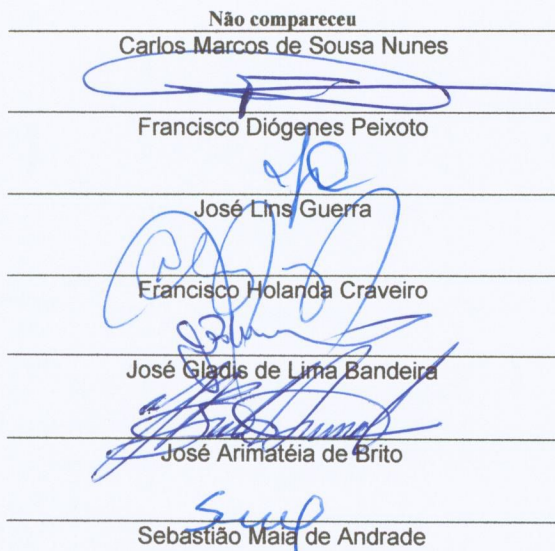 Não compareceu
Carlos Marcos de Sousa Nunes
Francisco Diógenes Peixoto
José Lins Guerra
Francisco Holanda Craveiro
José Gladis de Lima Bandeira
José Arimatéia de Brito
Sebastião Maia de Andrade